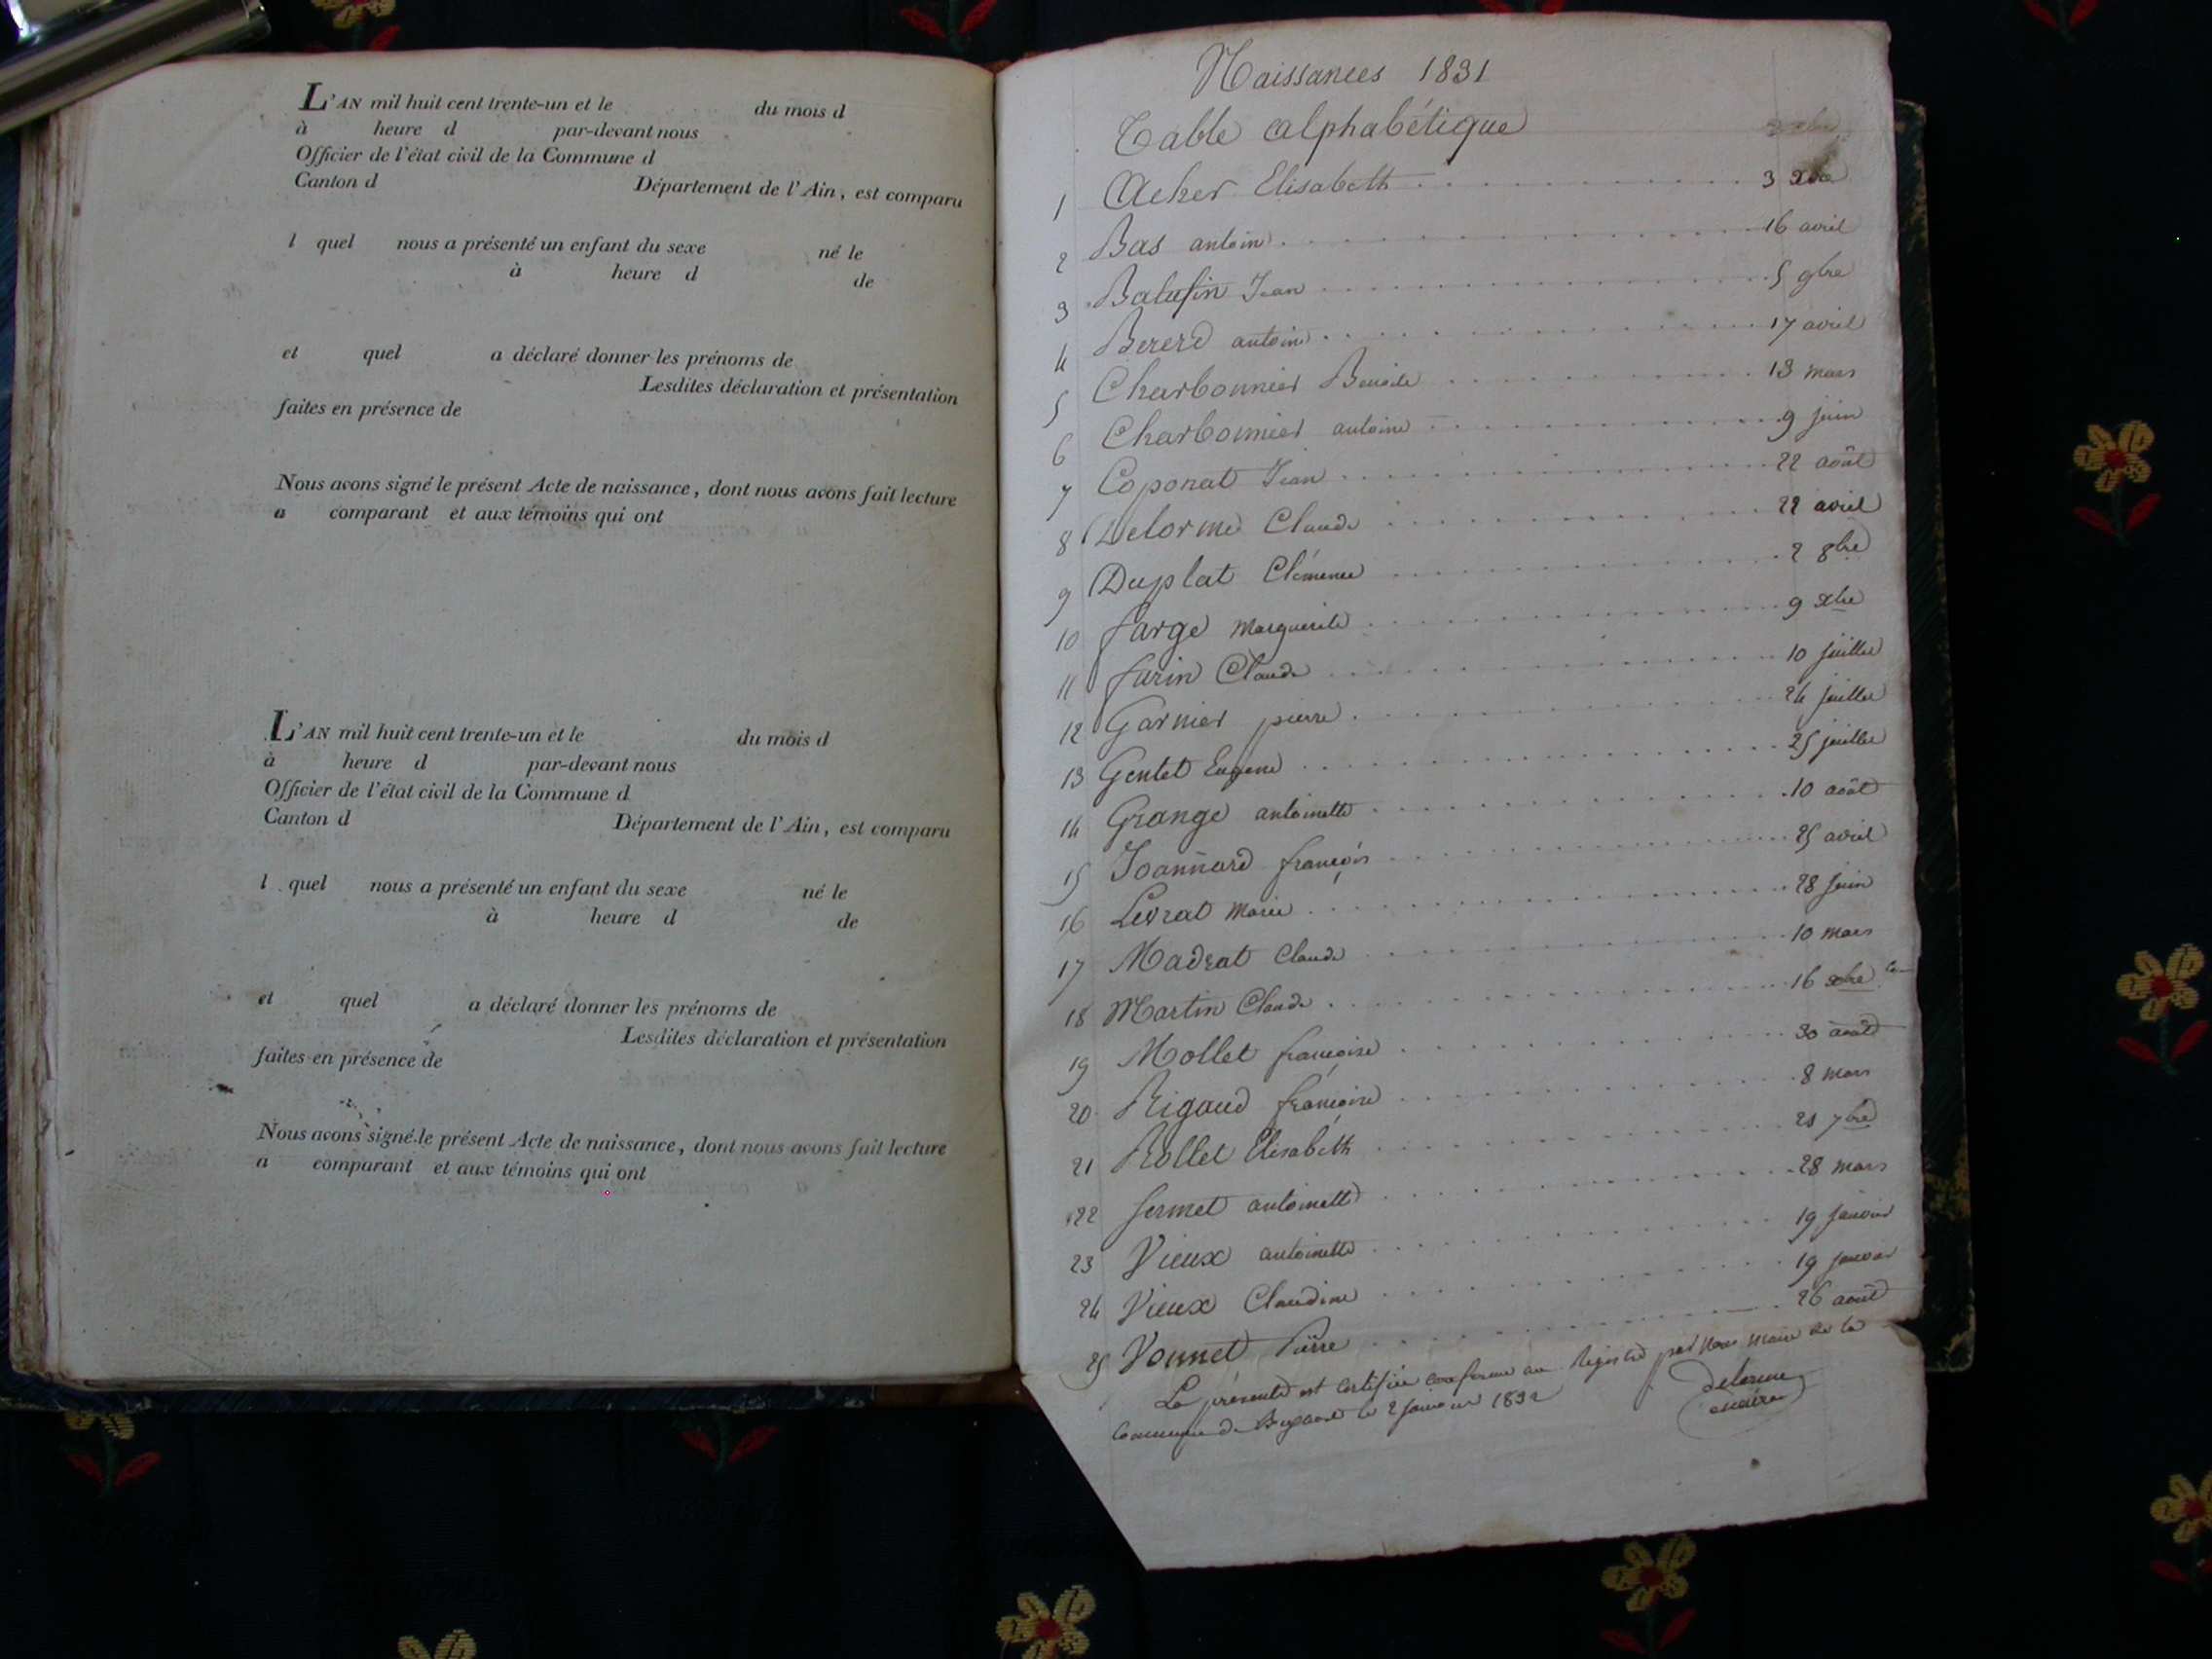 L'AN mil huit cent trente-un et le du mois d
à heure d par-devant nous
Officier de l'état civil de la Commune d
Canton d Département de l'Ain, est comparu
l quel nous a présenté un enfant du sexe né le
à heure d de
et quel a déclaré donner les prénoms de
Lesdites déclaration et présentation
faites en présence de
Nous avons signé le présent Acte de naissance, dont nous avons fait lecture
a comparant et aux témoins qui ont
L'AN mil huit cent trente-un et le du mois d
à heure d par-devant nous
Officier de l'état civil de la Commune d
Canton d Département de l'Ain, est comparu
l quel nous a présenté un enfant du sexe né le
à heure d de
et quel a déclaré donner les prénoms de
Lesdites déclaration et présentation
faites en présence de
Nous avons signé le présent Acte de naissance, dont nous avons fait lecture
a comparant et aux témoins qui ont
Naissances 1831
Table alphabétique
1 Acher Elisabeth 3 xbre
2 Bas antoine 16 avril
3 Batusin Jean 5 9bre
4 Bererd antoine 17 avril
5 Charbonnier Benoite 13 mars
6 Charbonnier antoine 9 juin
7 Coponat Jean 22 août
8 Delorme Claude 22 avril
9 Duplat Clémence 2 8bre
10 farge Marguerite 9 xbre
11 furin Claude 10 juillet
12 Garnier pierre 24 juillet
13 Gentet Eugene 25 juillet
14 Grange antoinette 10 août
15 Joannard françois 25 avril
16 Levrat Marie 28 juin
17 Madrat Claude 10 mars
18 Martin Claude 16 xbre
19 Mollet françoise 30 août
20 Rigaud françoise 8 mars
21 Rollet Elisabeth 21 7bre
22 Sermet antoinette 28 mars
23 Vieux antoinette 19 janvier
24 Vieux Claudine 19 janvier
25 Vonnet Pierre 26 août
La présente est certifiée conforme au Registre par nous maire de la
Commune de le 2 janvier 1832
Delorme
maire